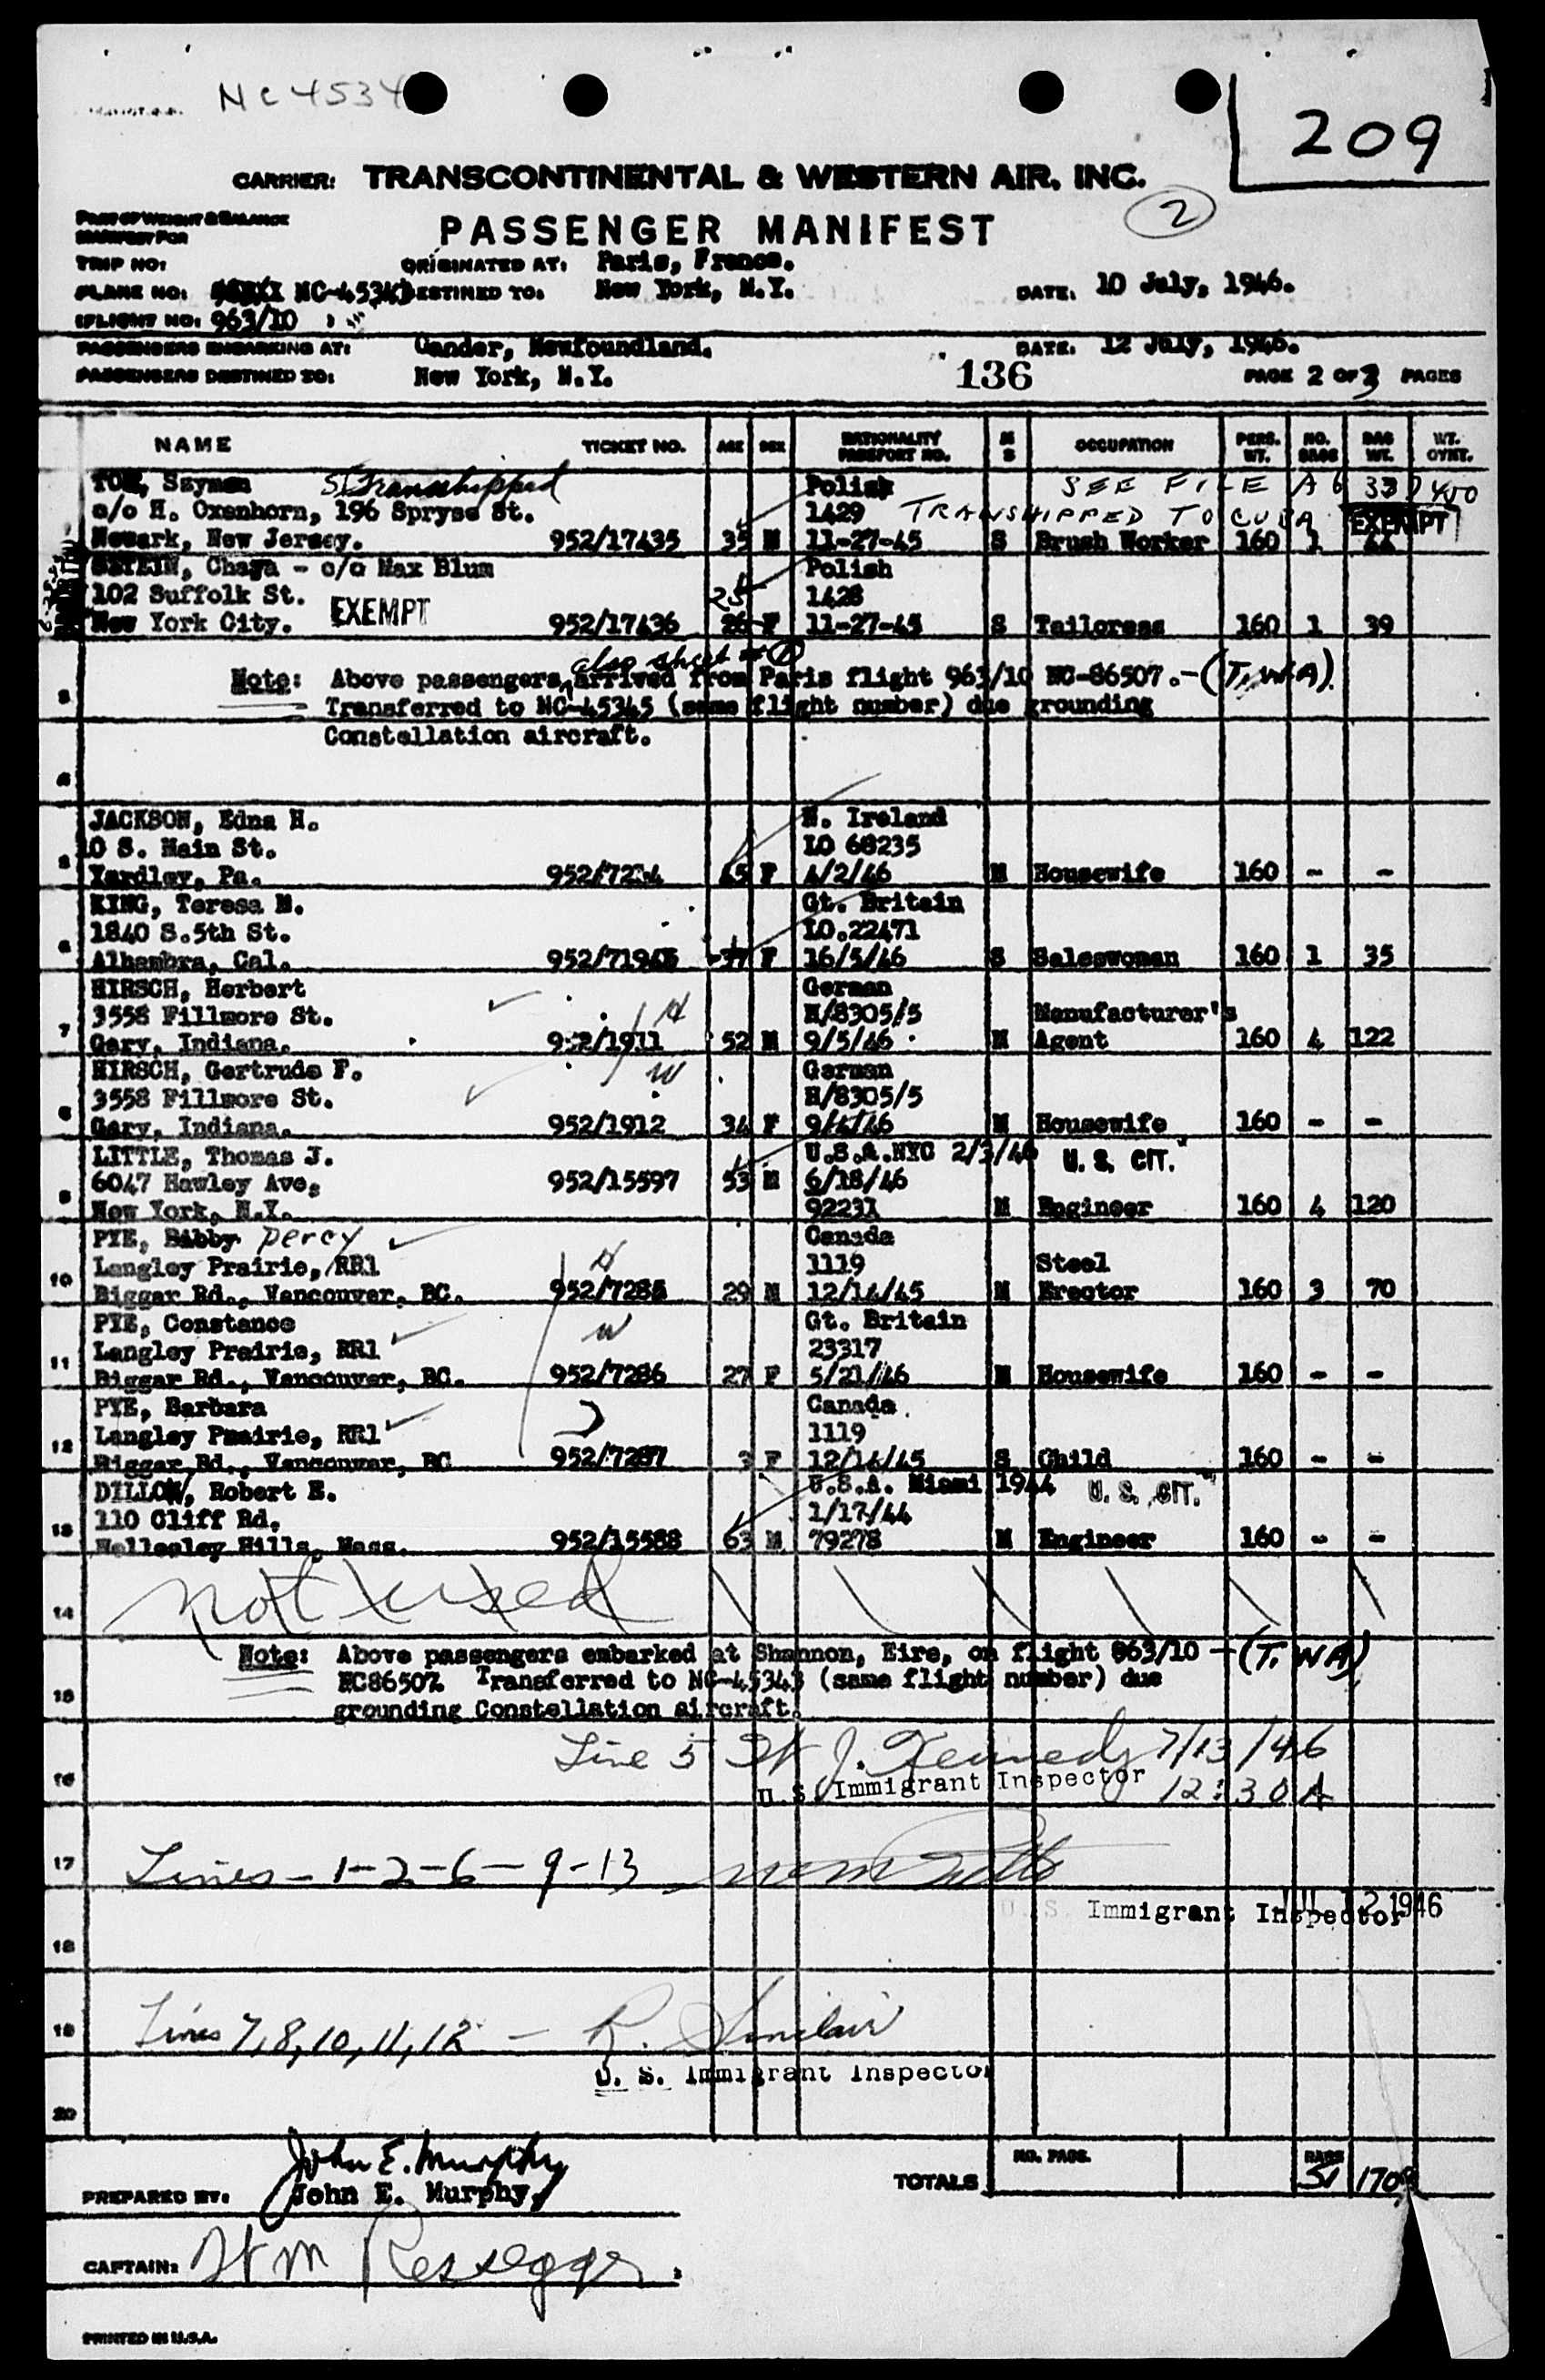 NC 4534
209
CARRIER: TRANSCONTINENTAL & WESTERN AIR, INC.
2
PART OF WEIGHT & BALANCE
MANIFEST FOR
PASSENGER MANIFEST
TRIP NO: ORIGINATED AT: Paris, France.
PLANE NO: NC-45343 DESTINED TO: New York, N.Y. DATE: 10 July, 1946.
(FLIGHT NO: 963/10 )
PASSENGERS EMBARKING AT: Gander, Newfoundland. DATE: 12 July, 1946.
PASSENGERS DESTINED TO: New York, N.Y. 136 PAGE 2 OF 3 PAGES
NAME TICKET NO. AGE SEX NATIONALITY PASSPORT NO. M S OCCUPATION PERS. WT. NO. BAGS BAG WT. WT. OVNT.
TOM, Szymon Transshipped Polish SEE FILE A6 337450
c/o H. Oxenhorn, 196 Spryse St. 1429 TRANSHIPPED TO CUBA EXEMPT
Newark, New Jersey. 952/17435 35 M 11-27-45 S Brush Worker 160 1 44
SZTEIN, Chaya - c/o Max Blum Polish
102 Suffolk St. EXEMPT 25 1428
New York City. 952/17436 26 F 11-27-45 S Tailoress 160 1 39
also sheet #1
3 Note: Above passengers, arrived from Paris flight 963/10 NC-86507.-(T.W.A).
Transferred to NC-45345 (same flight number) due grounding
Constellation aircraft.
4
JACKSON, Edna H. N. Ireland
5 10 S. Main St. LO 68235
Yardley, Pa. 952/7234 45 F 4/2/46 M Housewife 160 - -
KING, Teresa M. Gt. Britain
6 1840 S.5th St. LO.22471
Alhambra, Cal. 37 F 16/5/46 S Saleswoman 160 1 35
HIRSCH, Herbert German
7 3558 Fillmore St. H H/8305/5 Manufacturer's
Gary, Indiana. 952/1911 52 M 9/5/46 M Agent 160 4 122
HIRSCH, Gertrude F. W German
8 3558 Fillmore St. H/8305/5
Gary, Indiana. 952/1912 34 F M Housewife 160 - -
LITTLE, Thomas J. U.S.A.NYC 2/3/46 U. S. CIT.
9 6047 Hawley Ave, 952/15597 53 M 6/18/46
New York, N.Y. 92231 M Engineer 160 4 120
PYE, Bibby Percy Canada
10 Langley Prairie, RR1 H 1119 Steel
Biggar Rd., Vancouver, BC. 952/7285 29 M 12/14/45 M Erector 160 3 70
PYE, Constance W Gt. Britain
11 Langley Prairie, RR1 23317
Biggar Rd., Vancouver, BC. 952/7286 27 F 5/21/46 M Housewife 160 - -
PYE, Barbara Canada
12 Langley Prairie, RR1 1119
Biggar Rd., Vancouver, BC 952/7287 3 F 12/14/45 S Child 160 - -
DILLON, Robert E. U.S.A. Miami 1944 U. S. CIT.
13 110 Cliff Rd. 1/17/44
Wellesley Hills, Mass. 952/15588 63 M 79278 M Engineer 160 - -
14 not used
Note: Above passengers embarked at Shannon, Eire, on flight 963/10 -(T.WA)
15 NC86507. Transferred to NC-45343 (same flight number) due
grounding Constellation aircraft.
Line 5 J. Kennedy 7/13/46
16 U. S. Immigrant Inspector 12:30 A
17 Lines - 1-2-6-9-13
U. S. Immigrant Inspector JUL 12 1946
18
19 Lines 7,8,10,11,12 - R. Sinclair
U. S. Immigrant Inspector
20
John E. Murphy NO. PASS. BAGS
PREPARED BY: John E. Murphy TOTALS 51 1708
CAPTAIN: Wm Ressegger
PRINTED IN U.S.A.